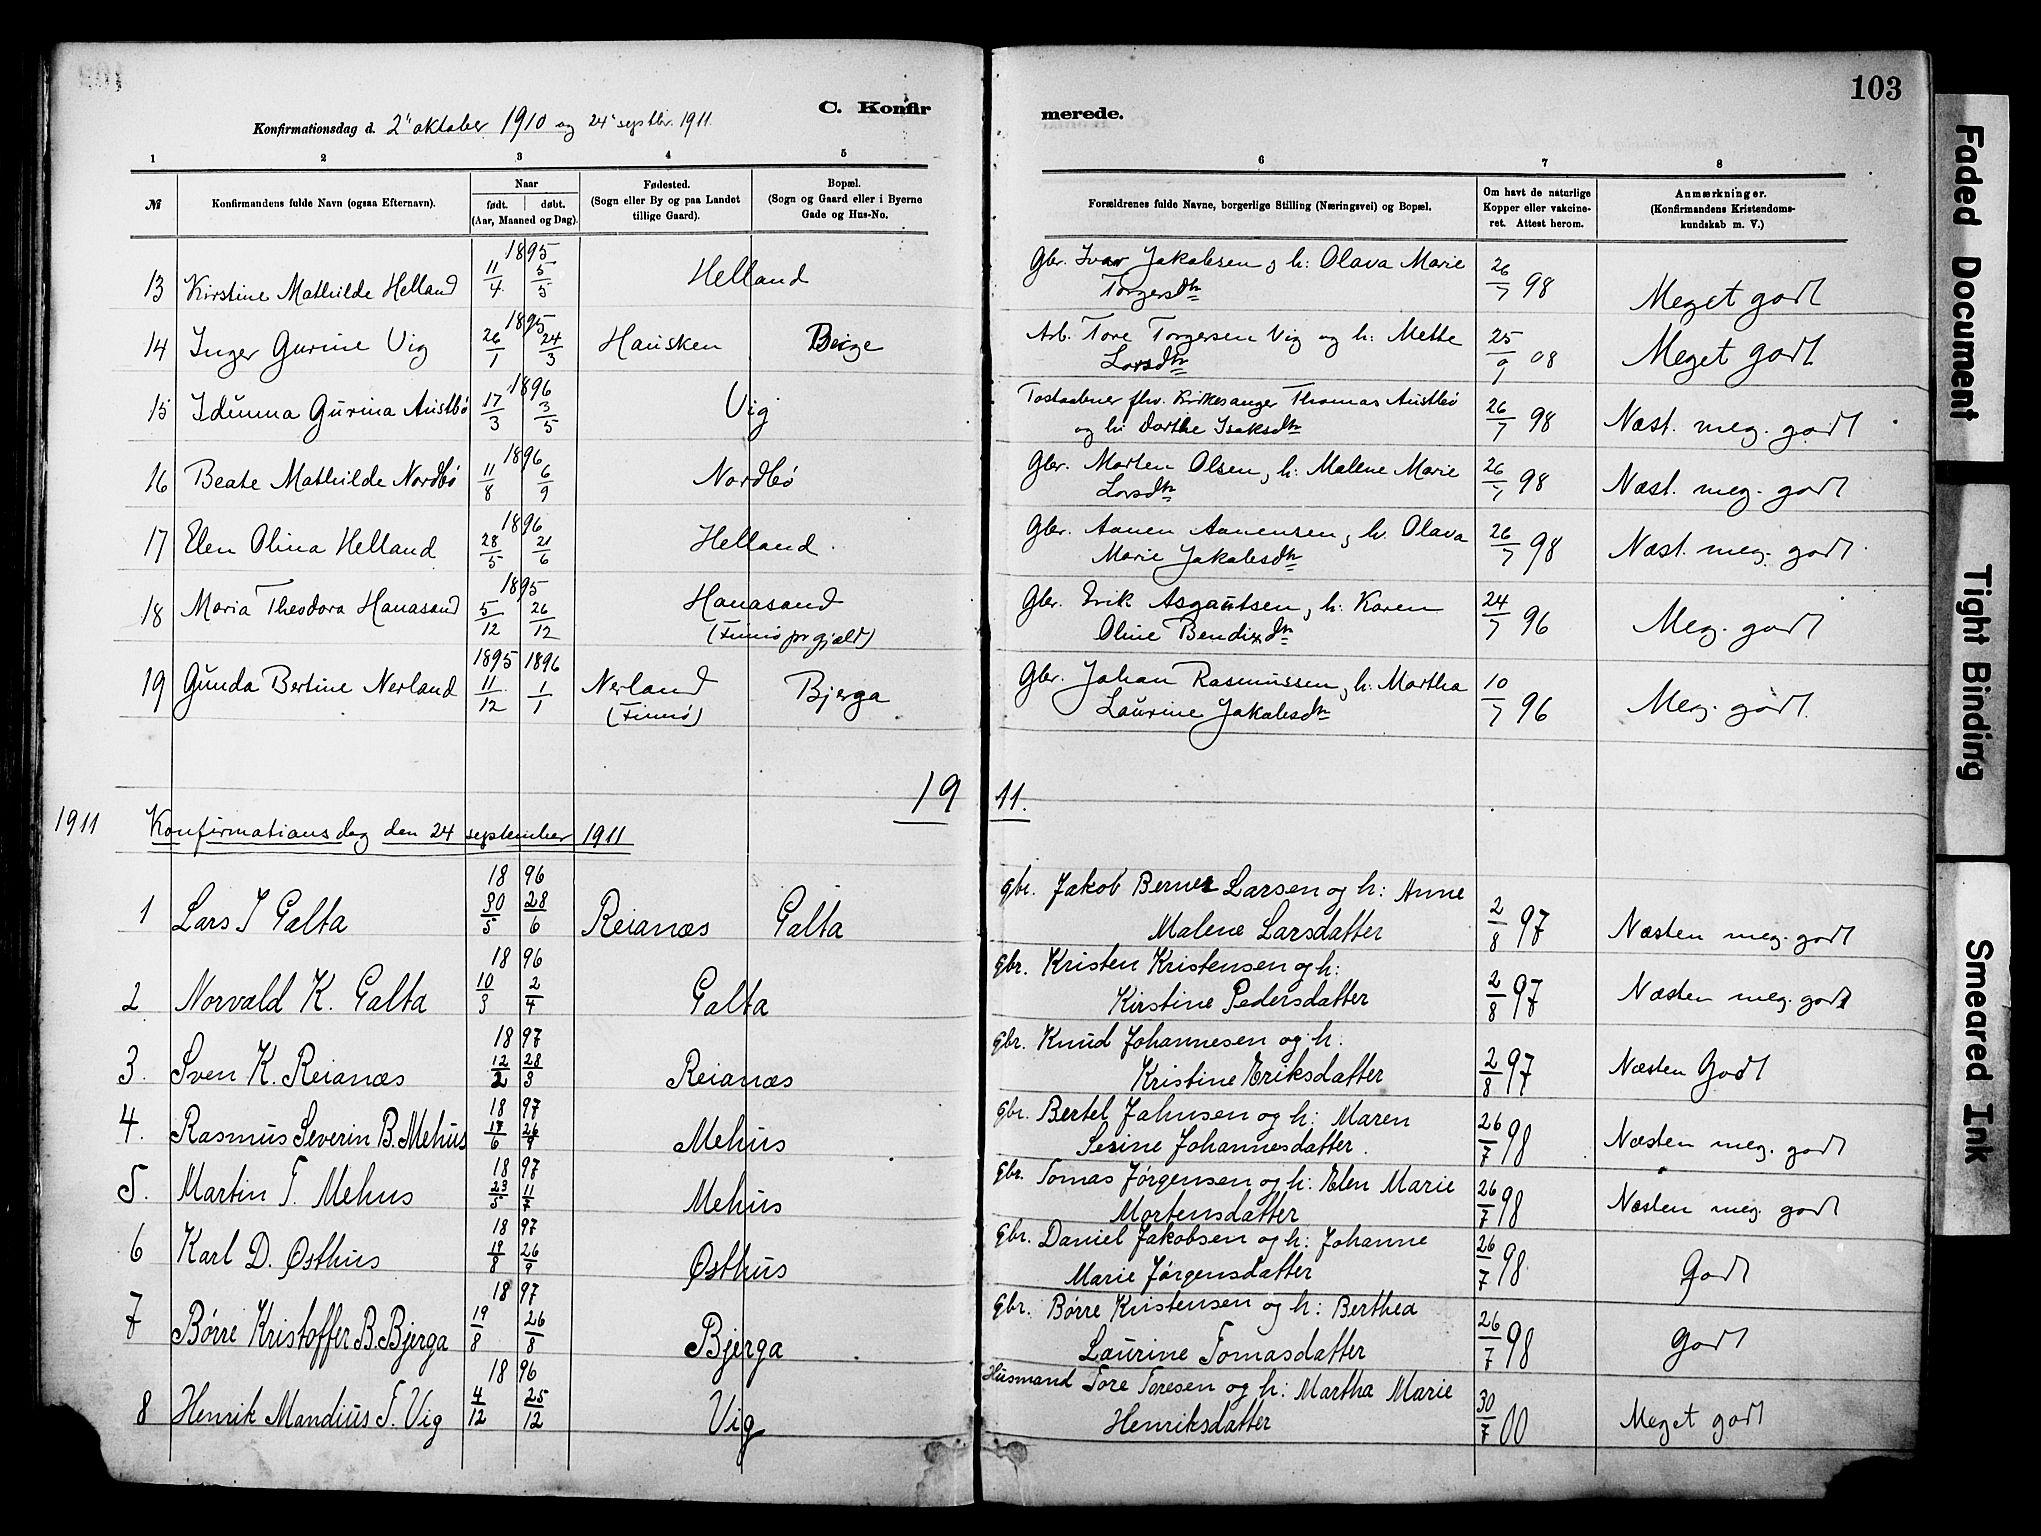 103
C. Konfir merede.
Konfirmationsdag d. 2' oktober 1910 og 24' septbr. 1911
1 2 3 4 5 6 7 8
№
Konfirmandens fulde Navn (ogsaa Efternavn).
Naar
født. døbt.
(Aar, Maaned og Dag).
Fødested.
(Sogn eller By og paa Landet
tillige Gaard).
Bopæl.
(Sogn og Gaard eller i Byerne
Gade og Hus-No.
Forældrenes fulde Navne, borgerlige Stilling (Næringsvei) og Bopæl.
Om havt de naturlige
Kopper eller vakcine-
ret. Attest herom.
Anmærkninger.
(Konfirmandens Kristendoms-
kundskab m. V.)
13 Kirstine Mathilde Helland 1895 11/4 5/5 Helland Gbr. Ivar Jakobsen, h: Olava Marie
Torgersdtr 26/7 98 Meget godt
14 Inger Gurine Vig 1895 26/1 24/3 Hausken Berge Arb. Tore Torgersen Vig og h: Mette
Larsdtr 25/9 08 Meget godt
15 Idunna Gurina Austbø 1896 17/3 3/5 Vig Postaabner fhv. Kirkesanger Thomas Austbø
og h: Dorthe Isaksdtr 26/7 98 Næst. meg. godt
16 Beate Mathilde Nordbø 1896 11/8 6/9 Nordbø Gbr. Morten Olsen, h: Malene Marie
Larsdtr 26/7 98 Næst. meg. godt
17 Elen Olina Helland 1896 28/5 21/6 Helland. Gbr. Aanen Aanensen, h: Olava
Marie Jakobsdtr 26/7 98 Næst. meg. godt.
18 Maria Theodora Hanasand 1895 5/12 26/12 Hanasand
(Finnø prgjæld) Gbr. Erik Asgautsen, h: Karen
Oline Bendixdtr 24/7 96 Meg. godt
19 Gunda Bertine Nerland 1895 11/12 1896 1/1 Nerland
(Finnø) Bjerga Gbr. Johan Rasmussen, h: Martha
Laurine Jakobsdtr 10/7 96 Meg. godt.
19 11.
1911 Konfirmationsdag den 24 september 1911
1 Lars J Galta 1896 30/5 28/6 Reianæs Galta Gbr. Jakob Berner Larsen og h: Anne
Malene Larsdatter 2/8 97 Næsten meg. godt
2 Norvald K. Galta 1896 10/3 2/4 Galta Gbr. Kristen Kristensen og h:
Kirstine Pedersdatter 2/8 97 Næsten meg. godt
3. Sven K. Reianæs 1897 12/2 28/3 Reianæs Gbr. Knud Johannesen og h.
Kristine Eriksdatter 2/8 97 Næsten Godt
4. Rasmus Severin B. Mehus 1897 17/6 26/7 Mehus Gbr. Bertel Jahnsen og h: Maren
Serine Johannesdatter. 26/7 98 Næsten meg. godt
5. Martin T. Mehus 1897 23/5 11/7 Mehus Gbr. Tomas Jørgensen og h: Elen Marie
Mortensdatter 26/7 98 Næsten meg. godt
6 Karl D. Østhus 1897 19/8 26/9 Østhus Gbr. Daniel Jakobsen og h: Johanne
Marie Jørgensdatter 26/7 98 Godt
7 Børre Kristoffer B. Bjerga 1897 19/8 26/8 Bjerga Gbr. Børre Kristensen og h: Berthea
Laurine Tomasdatter 26/7 98 Godt
8 Henrik Mandius T. Vig 1896 4/12 25/12 Vig Husmand Tore Toresen og h: Martha Marie
Henriksdatter 30/7 00 Meget godt
Faded Document
Tight Binding
Smeared Ink